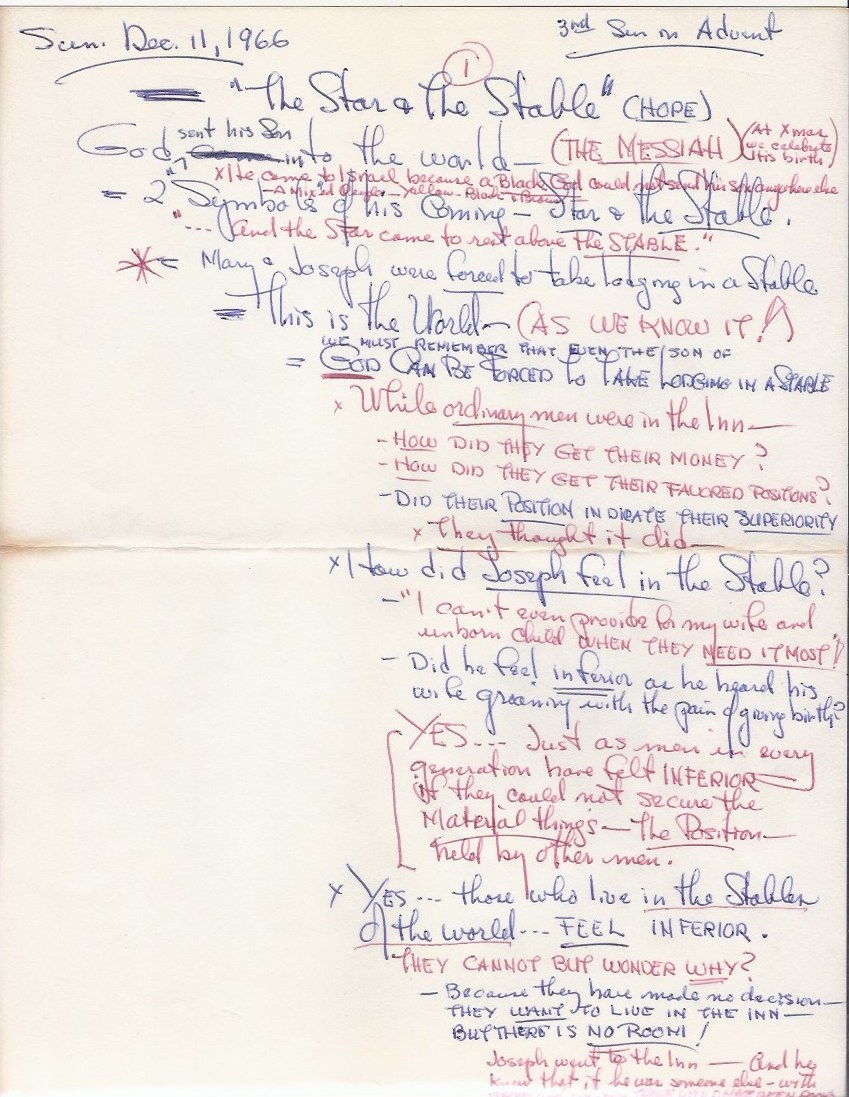 Sun. Dec. 11, 1966
3rd Sun in Advent
1
= "The Star & the Stable" (HOPE)
sent his Son
God into the world— (THE MESSIAH) (At Xmas we celebrate His birth)
x He came to Israel because a Black God could not send His son anywhere else
— A Mixed People — Yellow - Black & Brown
= 2 Symbols of his Coming — Star & the Stable.
"--- and the Star came to rest above the STABLE."
* = Mary & Joseph were forced to take lodging in a Stable
= This is the World — (AS WE KNOW IT!)
WE MUST REMEMBER THAT EVEN THE SON OF
= GOD CAN BE FORCED TO TAKE LODGING IN A STABLE
x While ordinary men were in the Inn—
- HOW DID THEY GET THEIR MONEY?
- HOW DID THEY GET THEIR FAVORED POSITIONS?
- DID THEIR POSITION INDICATE THEIR SUPERIORITY
x They thought it did—
x How did Joseph feel in the Stable?
- "I can't even provide for my wife and
unborn child WHEN THEY NEED IT MOST!"
- Did he feel inferior as he heard his
wife groaning with the pain of giving birth?
YES --- Just as men in every
generation have felt INFERIOR
if they could not secure the
Material things — the Position—
held by other men.
x YES --- those who live in the Stables
of the world --- FEEL INFERIOR.
THEY CANNOT BUT WONDER WHY?
- Because they have made no decision—
THEY WANT TO LIVE IN THE INN—
BUT THERE IS NO ROOM!
Joseph went to the Inn — and he
knew that if he was someone else — with